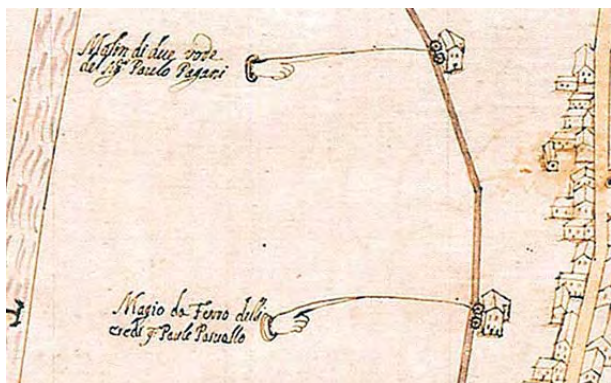 Molin di due rode
del Sig.r Paulo Pagani
Magio da Ferro delli
eredi q.m Paulo